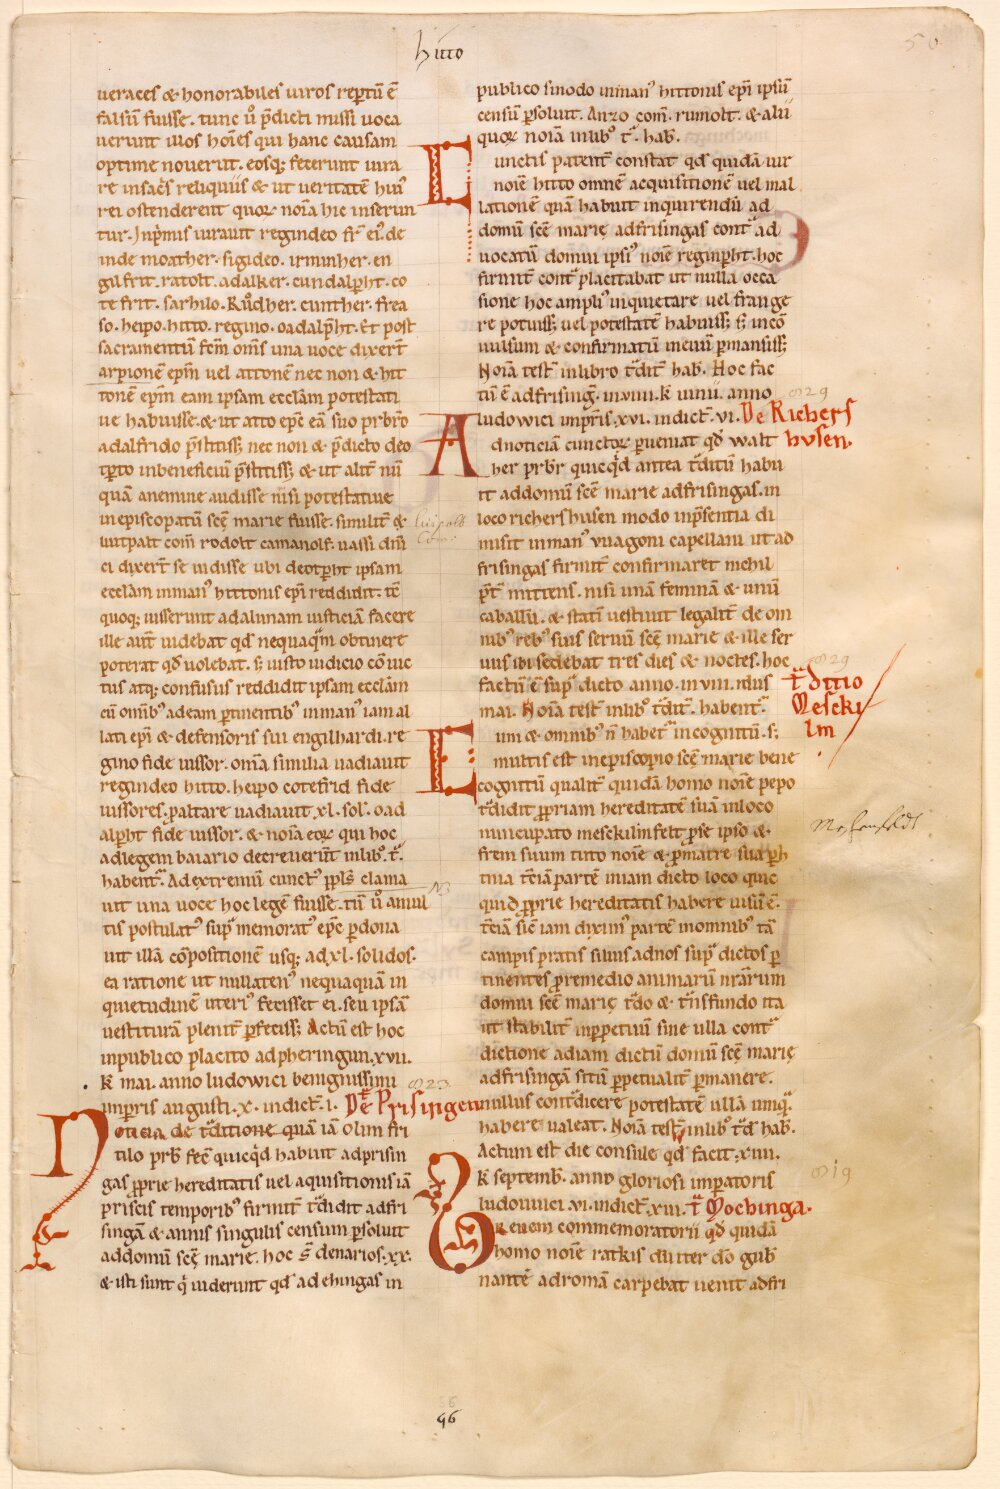 hitto
50
ueraces & honorabiles uiros reptū ē
falsū fuisse. tunc ů p̄dicti missi uoca
uerunt illos hoīes qui hanc causam
optime nouerūt. eosq; fecerunt iura
re insac̄s reliquiis & ut ueritatē hui᾽
rei ostenderent quoꝝ noīa hic inserun
tur. Inp̄mis iurauit regindeo fr̄ ei᾽. de
inde moather. sigideo. irminher. en
gilfrit. ratolt. adalker. cundalpħt. co
te frit. sarhilo. Růdher. cunther. frea
so. heipo. hitto. regino. oadalpħt. Et post
sacramentū fc̄m om̄s una uoce dixer̄t
arpionē ep̄m uel attonē nec non & hit
tonē ep̄m eam ipsam eccl̄am potestati
ue habuisse. & ut atto ep̄c eā suo pr̄bro
adalfrido p̄stitiss; nec non & p̄dicto deo
tp̄to inbeneficiū p̄stitiss; & ut alit̄ nū
quā anemine audisse nisi potestatiue
inepiscopatū scę̄ marie fuisse. similit̄ &
liutpalt com̄ rodolt camanolf. uassi dn̄i
ci dixer̄t se uidisse ubi deotpħt ipsam
eccl̄am inman᾽ hittonis ep̄i reddidit. tē
quoq; iusserunt adalunam iusticiā facere
ille aut̄ uidebat qd̄ nequaq̄m obtinere
poterat qd̄ uolebat. s; iusto iudicio cō uic
tus atq; confusus reddidit ipsam eccl̄am
cū omib᾽ adeam p̱tinentib᾽ inman᾽ iam al
lati ep̄i & defensoris sui engilhardi. re
gino fide iussor. om̄a similia uadiauit
regindeo hitto. heipo cotefrid fide
iussores. p̱altare uadiauit .xl. sol. oad
alpħt fide iussor. & noīa eoꝝ qui hoc
adlegem baiario decreuerūt inlib᾽. t᷑.
habent᷑. Ad extremū cunct᾽ ppl̄s clama
uit una uoce hoc legē fuisse. tū ů amul
tis postulat᾽ sup᷑ memorat᾽ ep̄c p̱dona
uit illā cōpositionē usq; ad .xl. solidos.
ea ratione ut nullaten᾽ nequaquā in
quietudinē uteri᾽ fecisset ei. seu ipsā
uestiturā plenit̄ p̱feciss; Actū est hoc
inpublico placito adpheringun. xvii.
k̄ mai. anno ludowici benignissimi
imp̱ris augusti. x. indict̄. i. De Prisingen
Noticia de t᷑ditione quā iā olim fri
tilo prb̄ fec̄ quicqd̄ habuit adprisin
gas pprie hereditatis uel aquisitionis iā
priscis temporib᾽ firmit̄ t᷑didit adfri
singā & annis singulis censum p̱soluit
addomū scę̄ marie. hoc ē denarios. xx.
& isti sunt q̇ uiderunt qd̄ ad ehingas in
publico sinodo inman᾽ hittonis ep̄i ipsū
censū p̱soluit. Anzo com̄. rumolt. & alii
quoꝝ noīa inlib᾽ t᷑. hab̄.
Cunctis patent̄ constat qd̄ quidā uir
noīe hitto omnē acquisitionē uel mal
lationē quā habuit inquirendū ad
domū scē marię adfrisingas cont᷑ ad
uocatū domui ipsi᾽ noīe reginpħt. hoc
firmit̄ cont᷑ placitabat ut nulla occa
sione hoc ampli᾽ inquietare uel frange
re potuiss; uel potestatē habuiss; s; incō
uulsum & confirmatū ineuū p̱mansiss;
Noīa test᷑ inlibro t᷑dit̄ hab̄. Hoc fac
tū ē adfrisinḡ. in viiii. k̄ iunii. anno
ludowici imp̱ris. xvi. indict̄. vi. De Richers
husen.
Ad noticiā cunctoꝝ p̱ueniat qd̄ walt
her prb̄r quicqd̄ antea t᷑ditū habu
it addomū scę̄ marie adfrisingas. in
loco richershusen modo inp̄sentia di
misit inman᾽ vuagoni capellani ut ad
frisingas firmit̄ confirmaret nichil
p̄t᷑ mittens. nisi unā feminā & unū
caballū. & statī uestiuit legalit̄ de om
nib᾽ reb᾽ suis seruū scę̄ marie & ille ser
uus ibi sedebat tres dies & noctes. hoc
factū ē sup᷑ dicto anno. in viii. idus
mai. Noīa test᷑ inlib᾽ t᷑dit̄. habent᷑.
t᷑ditio
Mescki
lm
Cum & omnib᾽ n̄ habet᷑ incognitū. s;
multis est inepiscopio scę̄ marie bene
cognitū qualit̄ quidā homo noīe pepo
t᷑didit p̱priam hereditatē suā inloco
nuncupato meschilmfelt p̱se ipso &
frem suum tuto noīe & p̱matre sua pħ
tnia t̄ciā partē iniam dicto loco quic
quid p̱prie hereditatis habere uisū ē.
t̄ciā sic̄ iam dixim᾽ partē inomnib᾽ tā
campis pratis siluis adnos sup᷑ dictos p̱
tinentes p̱remedio animarū nrārum
domui scę̄ marię t᷑do & t᷑nsfundo ita
ut stabilit̄ inp̱petuū sine ulla cont᷑
dictione adiam dictū domū scę̄ marię
adfrisingā sitū p̱petualit̄ p̱manere.
nullus cont᷑dicere potestatē ullā umq᷑.
habere ualeat. Noīa test᷑ inlib᾽ t᷑d hab̄.
Actum est die consule qd̄ facit. xiiii.
k̄ septemb̄. anno gloriosi imp̱atoris
ludouuici. vi. indict̄. xiii. t᷑ Mochinga.
homo noīe ratkis duiter dō gub̄
nantē adromā carpebat uenit adfri
96